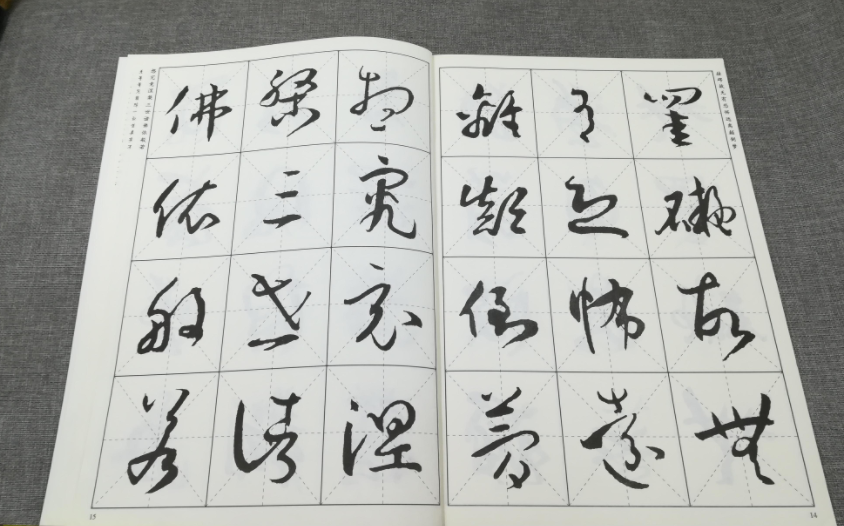 罣礙故無
有恐怖遠
離顛倒夢
14
想究竟涅
槃三世諸
佛依般若
15